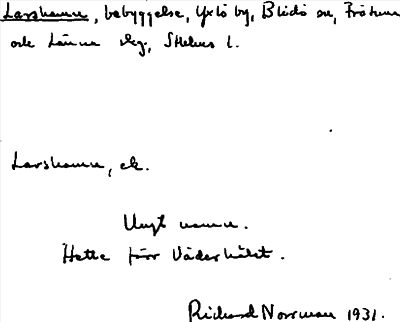 Larshamn, bebyggelse, Yxlö by, Blidö sn, Frötuna
och Länna skg, Sthlms l.
Larshamn, ek.
Ungt namn.
Hette förr Väderhålet.
Richard Norrman 1931.